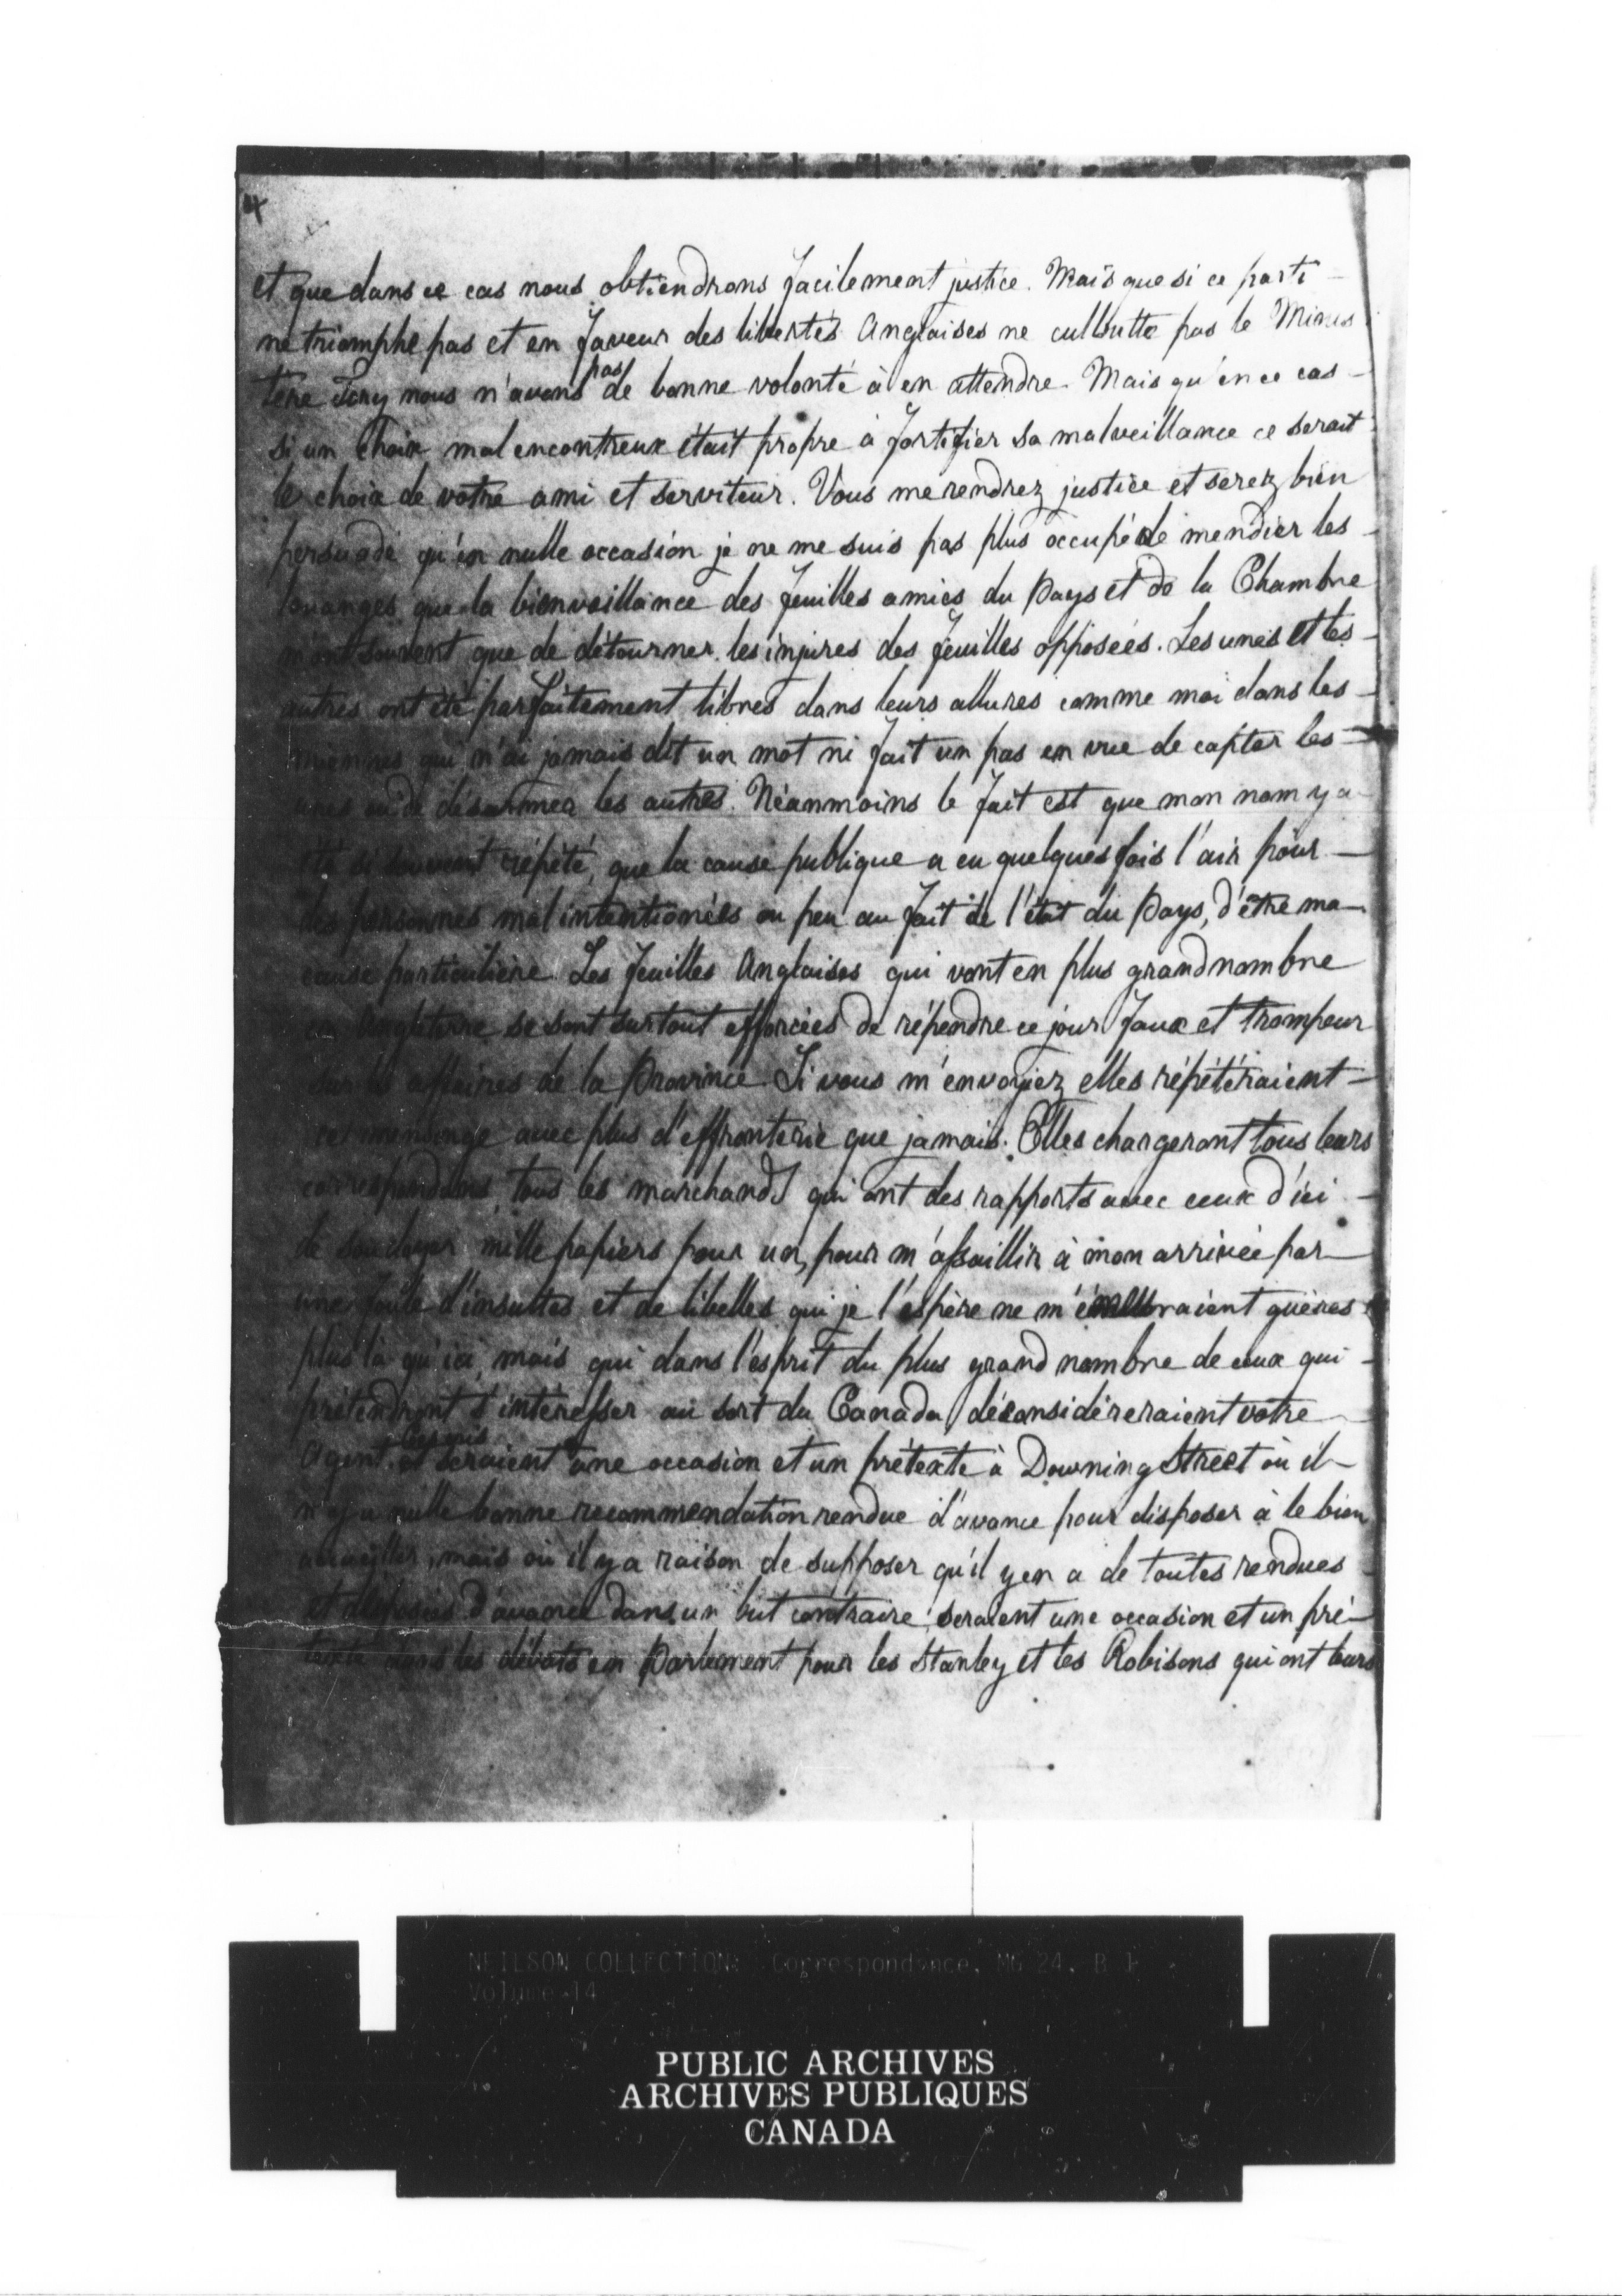 4
et que dans ce cas nous obtiendrons facilement justice. Mais que si ce parti -
ne triomphe pas et en faveur des libertés Anglaises ne culbutte pas le Minis
tère Tory nous n'avons pas de bonne volonté à en attendre. Mais qu'en ce cas -
si un choix mal encontreux était propre à fortifier sa malveillance ce serait
le choix de votre ami et serviteur. Vous me rendrez justice et serez bien
persuadé qu'en nulle occasion je ne me suis pas plus occupé de mendier les -
louanges que la bienveillance des feuilles amies du Pays et de la Chambre
m'ont souvent que de détourner les injures des feuilles opposées. Les unes et les -
autres ont été parfaitement libres dans leurs allures comme moi dans les -
miennes qui n'ai jamais dit un mot ni fait un pas en vue de capter les -
unes ou de désarmer les autres. Néanmoins le fait est que mon nom y a
été si souvent répété, que la cause publique a eu quelques fois l'air pour -
des personnes mal intentionées ou peu au fait de l'état du Pays, d'être ma -
cause particulière. Les feuilles Anglaises qui vont en plus grand nombre
en Angleterre se sont surtout efforcées de répendre ce jour faux et trompeur
sur les affaires de la Province. Si vous m'envoyiez elles répétéraient -
ce mensonge avec plus d'effronterie que jamais. Elles chargeront tous leurs
correspondans, tous les marchands qui ont des rapports avec ceux d'ici -
de soudoyer mille papiers pour un, pour m'assaillir à mon arrivée par -
une foule d'insultes et de libelles qui je l'espère ne m' guères
plus là qu'ici, mais qui dans l'esprit du plus grand nombre de ceux qui -
prétendront s'intéresser au sort du Canada déconsidéreraient votre -
Agent. et seraient une occasion et un prétexte à Downing Street où il -
n'y a nulle bonne recommendation rendue d'avance pour disposer à le bien
accueillir, mais où il y a raison de supposer qu'il y en a de toutes rendues -
et disposées d'avance dans un but contraire; seraient une occasion et un pré -
texte dans les débats en Parlement pour les Stanley et les Robisons qui ont leurs
NEILSON COLLECTION: Correspondance, MG 24, B 1
Volume 14
PUBLIC ARCHIVES
ARCHIVES PUBLIQUES
CANADA